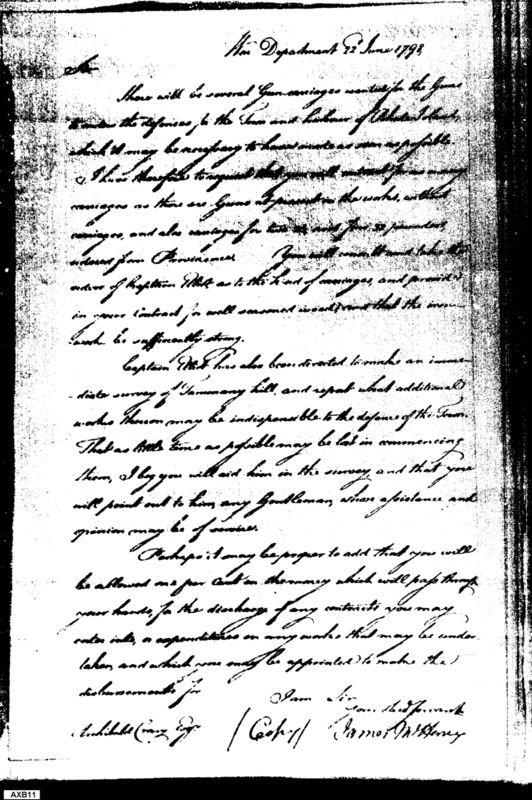 War Department 22 June 1798
Sir
There will be several Gun carriages wanted for the Guns
to the defences, for the Town and harbour of Rhode Island,
which it may be necessary to have made as soon as possible.
I have therefore to request that you will contract for as many
carriages as there are Guns at present in the works, without
carriages, and also carriages for two and four 32 pounders,
ordered from Providence. You will consult and take the
orders of Captain as to the kind of carriages, and provide
in your Contract for well seasoned wood, and that the iron
work be sufficiently strong.
Captain has also been directed to make an imme-
-diate survey of Tammany hill, and report what additional
works thereon may be indispensible to the defence of the Town.
That as little time as possible may be lost in commencing
them, I beg you will aid him in the survey, and that you
will point out to him, any Gentleman, whose assistance and
opinion may be of service.
Perhaps it may be proper to add that you will
be allowed one per Cent on the money which will pass through
your hands, for the discharge of any contracts you may
enter into, or expenditures on any works that may be under-
taken, and which you may be appointed to make the
disbursements for
I am Sir
your obed servant
Archibald Crary Esqr (Copy) James McHenry
AXB11